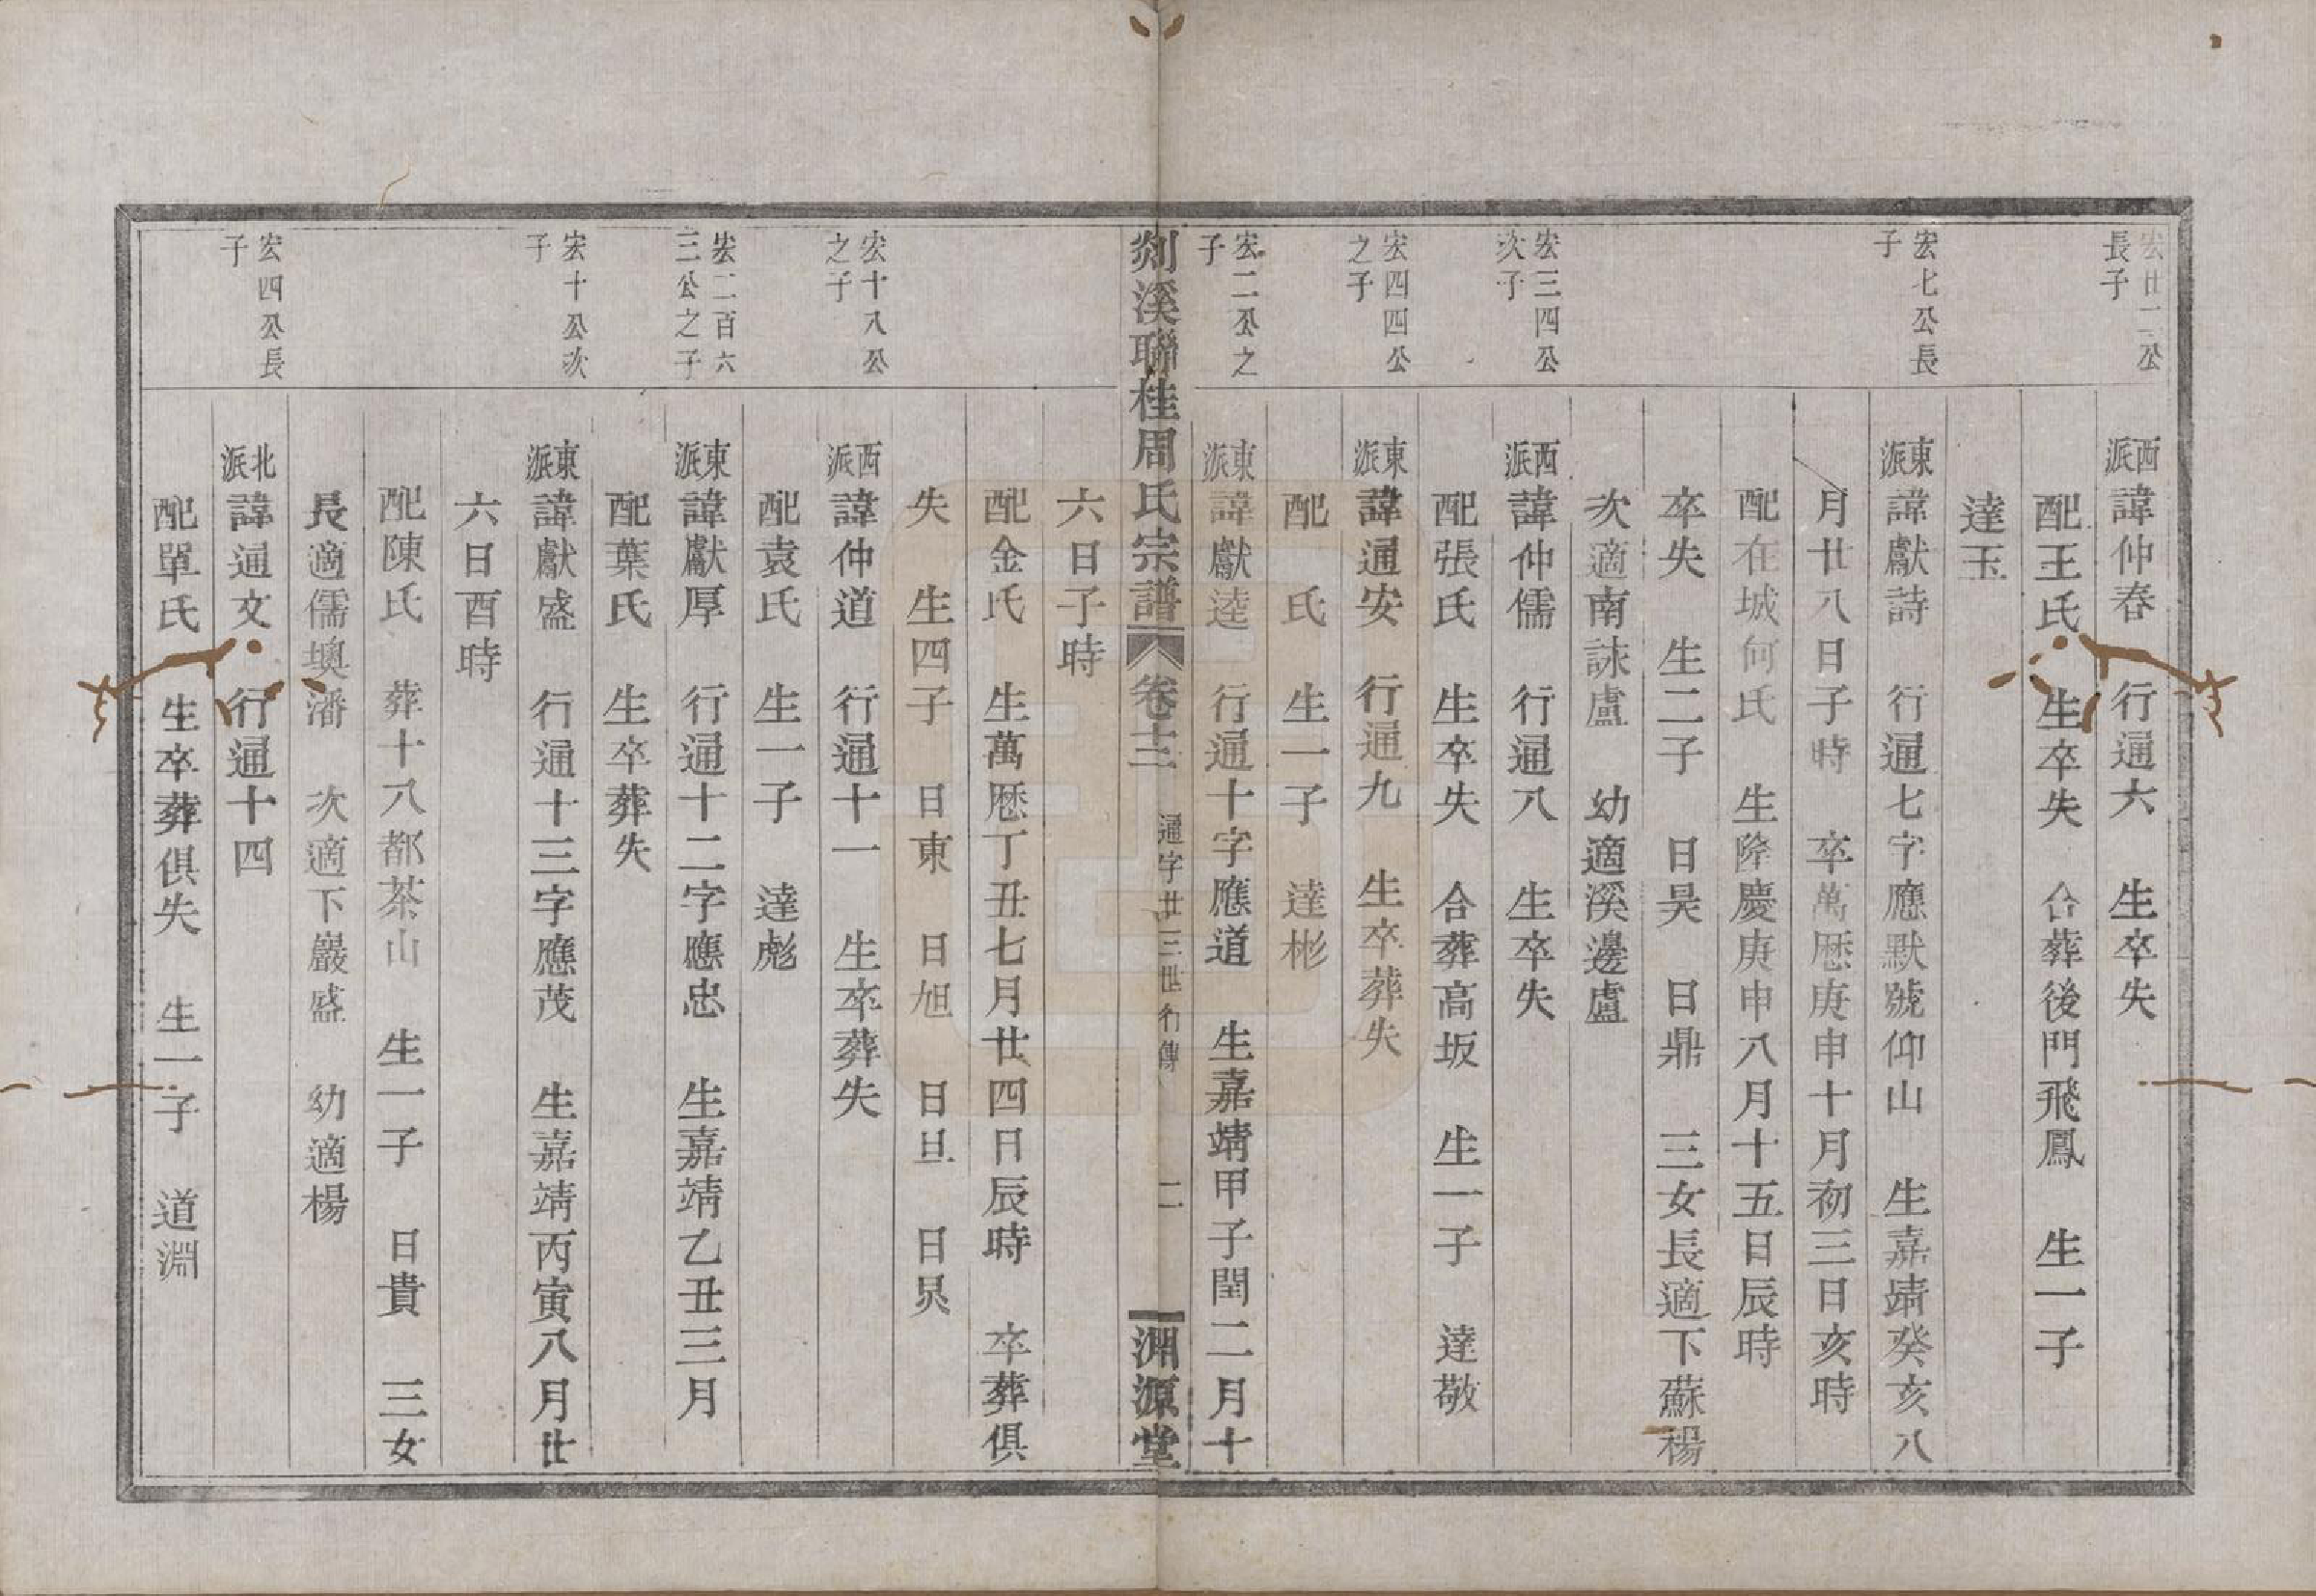 宏廿二公
長子
西派 諱仲春 行通六 生卒失
配王氏 生卒失 合葬後門飛鳳 生一子
達玉
宏七公長
子
東派 諱獻詩 行通七字應默號仰山 生嘉靖癸亥八
月廿八日子時 卒萬厯庚申十月初三日亥時
配在城何氏 生隆慶庚申八月十五日辰時
卒失 生二子 日昊 日鼎 三女長適下蘇楊
次適南詸盧 幼適溪邊盧
宏三四公
次子
西派 諱仲儒 行通八 生卒失
配張氏 生卒失 合葬高坂 生一子 達敬
宏四四公
之子
東派 諱通安 行通九 生卒葬失
配 氏 生一子 達彬
宏二公之
子
東派 諱獻逵 行通十字應道 生嘉靖甲子閏二月十
剡溪聯桂周氏宗譜 卷十二 通字廿三世行傳 二 淵源堂
六日子時
配金氏 生萬厯丁丑七月廿四日辰時 卒葬俱
失 生四子 日東 日旭 日旦 日炅
宏十八公
之子
西派 諱仲道 行通十一 生卒葬失
配袁氏 生一子 達彪
宏二百六
三公之子
東派 諱獻厚 行通十二字應忠 生嘉靖乙丑三月
配葉氏 生卒葬失
宏十公次
子
東派 諱獻盛 行通十三字應茂 生嘉靖丙寅八月廿
六日酉時
配陳氏 葬十八都茶山 生一子 日貴 三女
長適儒墺潘 次適下巖盛 幼適楊
宏四公長
子
北派 諱通文 行通十四
配單氏 生卒葬俱失 生一子 道淵